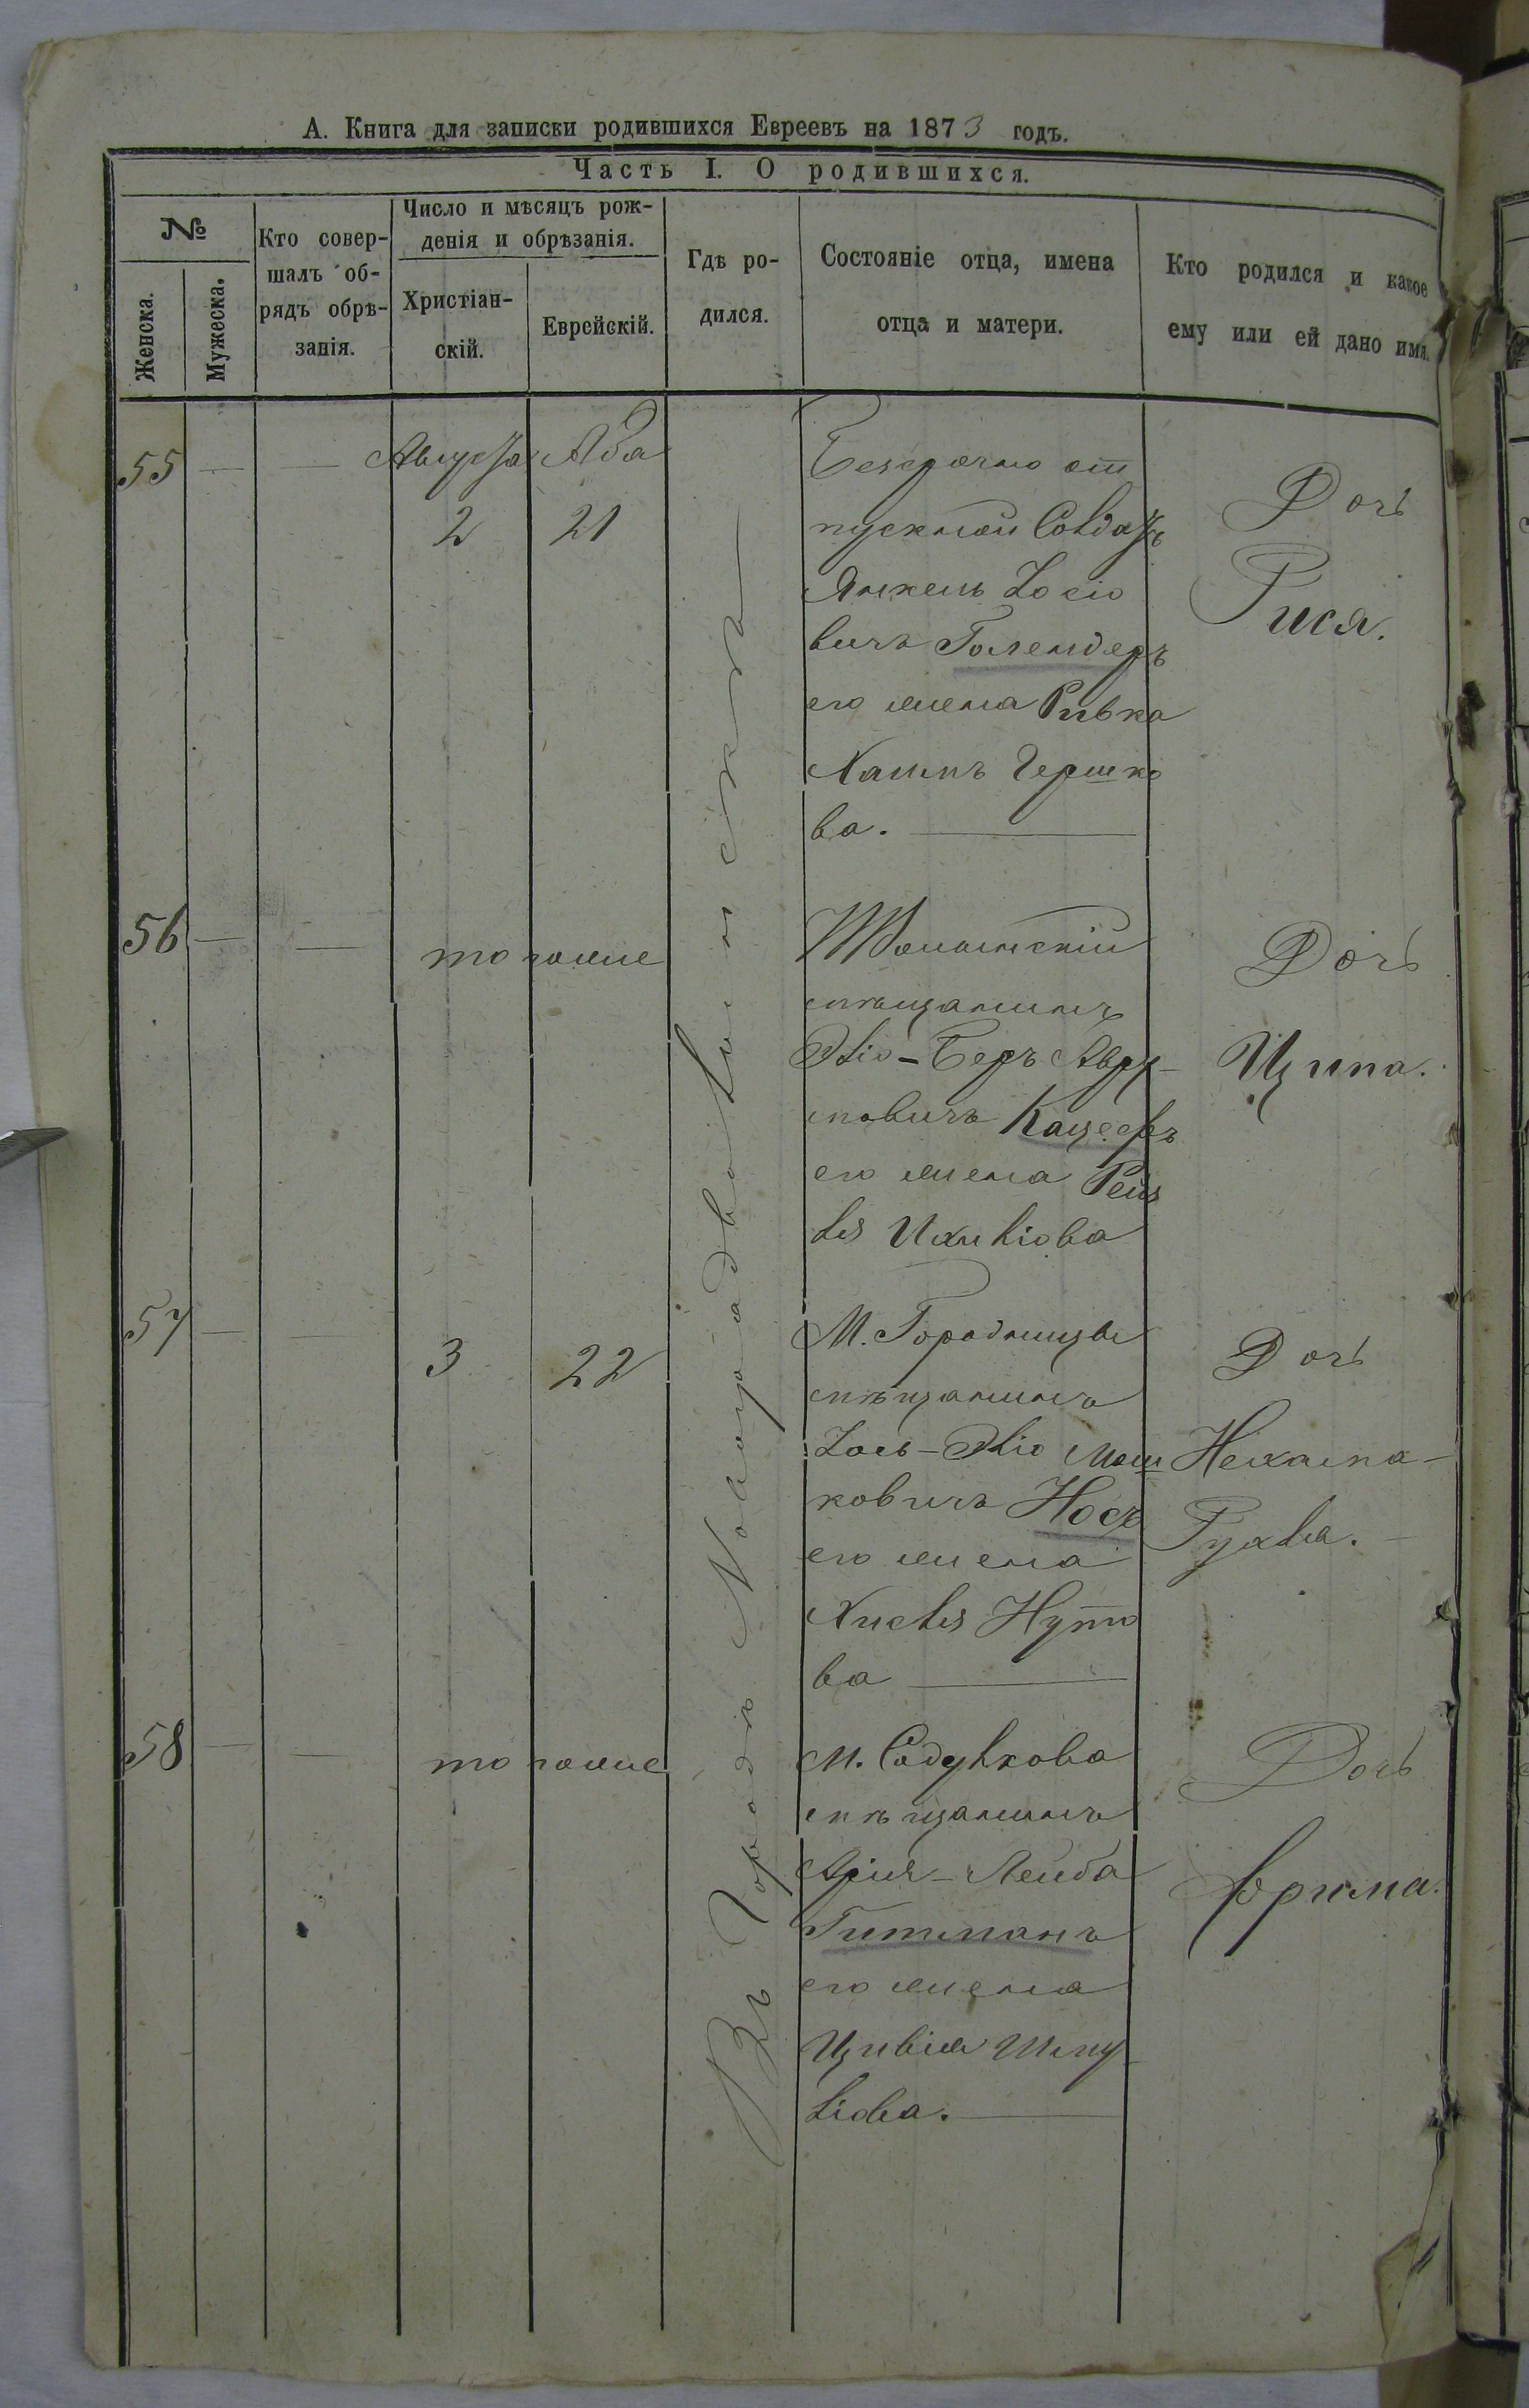 А. Книга для записки родившихся Евреевъ на 1873 годъ.
Часть I. О родившихся.
№
Женска.
Мужеска.
Кто совер-
шалъ об-
рядъ обрѣ-
занія.
Число и мѣсяцъ рож-
денія и обрѣзанія.
Христіан-
скій.
Еврейскій.
Гдѣ ро-
дился.
Состояніе отца, имена
отца и матери.
Кто родился и какое
ему или ей дано имя.
Въ Городѣ Новоградволинскѣ
55 — — Августа Ава
2 21
Безсрочно от
пускной Солдатъ
Янкель Іосіо
вичъ Голендеръ
его жена Ривка
Хаимъ Гершко
ва.
Дочь
Рися.
56 — — тогоже
мѣщанинъ
Эліо-Беръ Авру
мовичъ Кацефъ
его жена Рейз
ля Ихиліова
Дочь
Ципа.
57 — — 3 22
М. Городницы
мѣщанинъ
Іось-Эліо Мош
ковичъ Носъ
его жена
Хисля Нутто
ва
Дочь
Нехама-
Рухля.
58 — — тогоже
М. Садулкова
мѣщанинъ
Арія-Лейба
Гитманъ
его жена
Цивія Шму
ліова.
Дочь
Фрима.